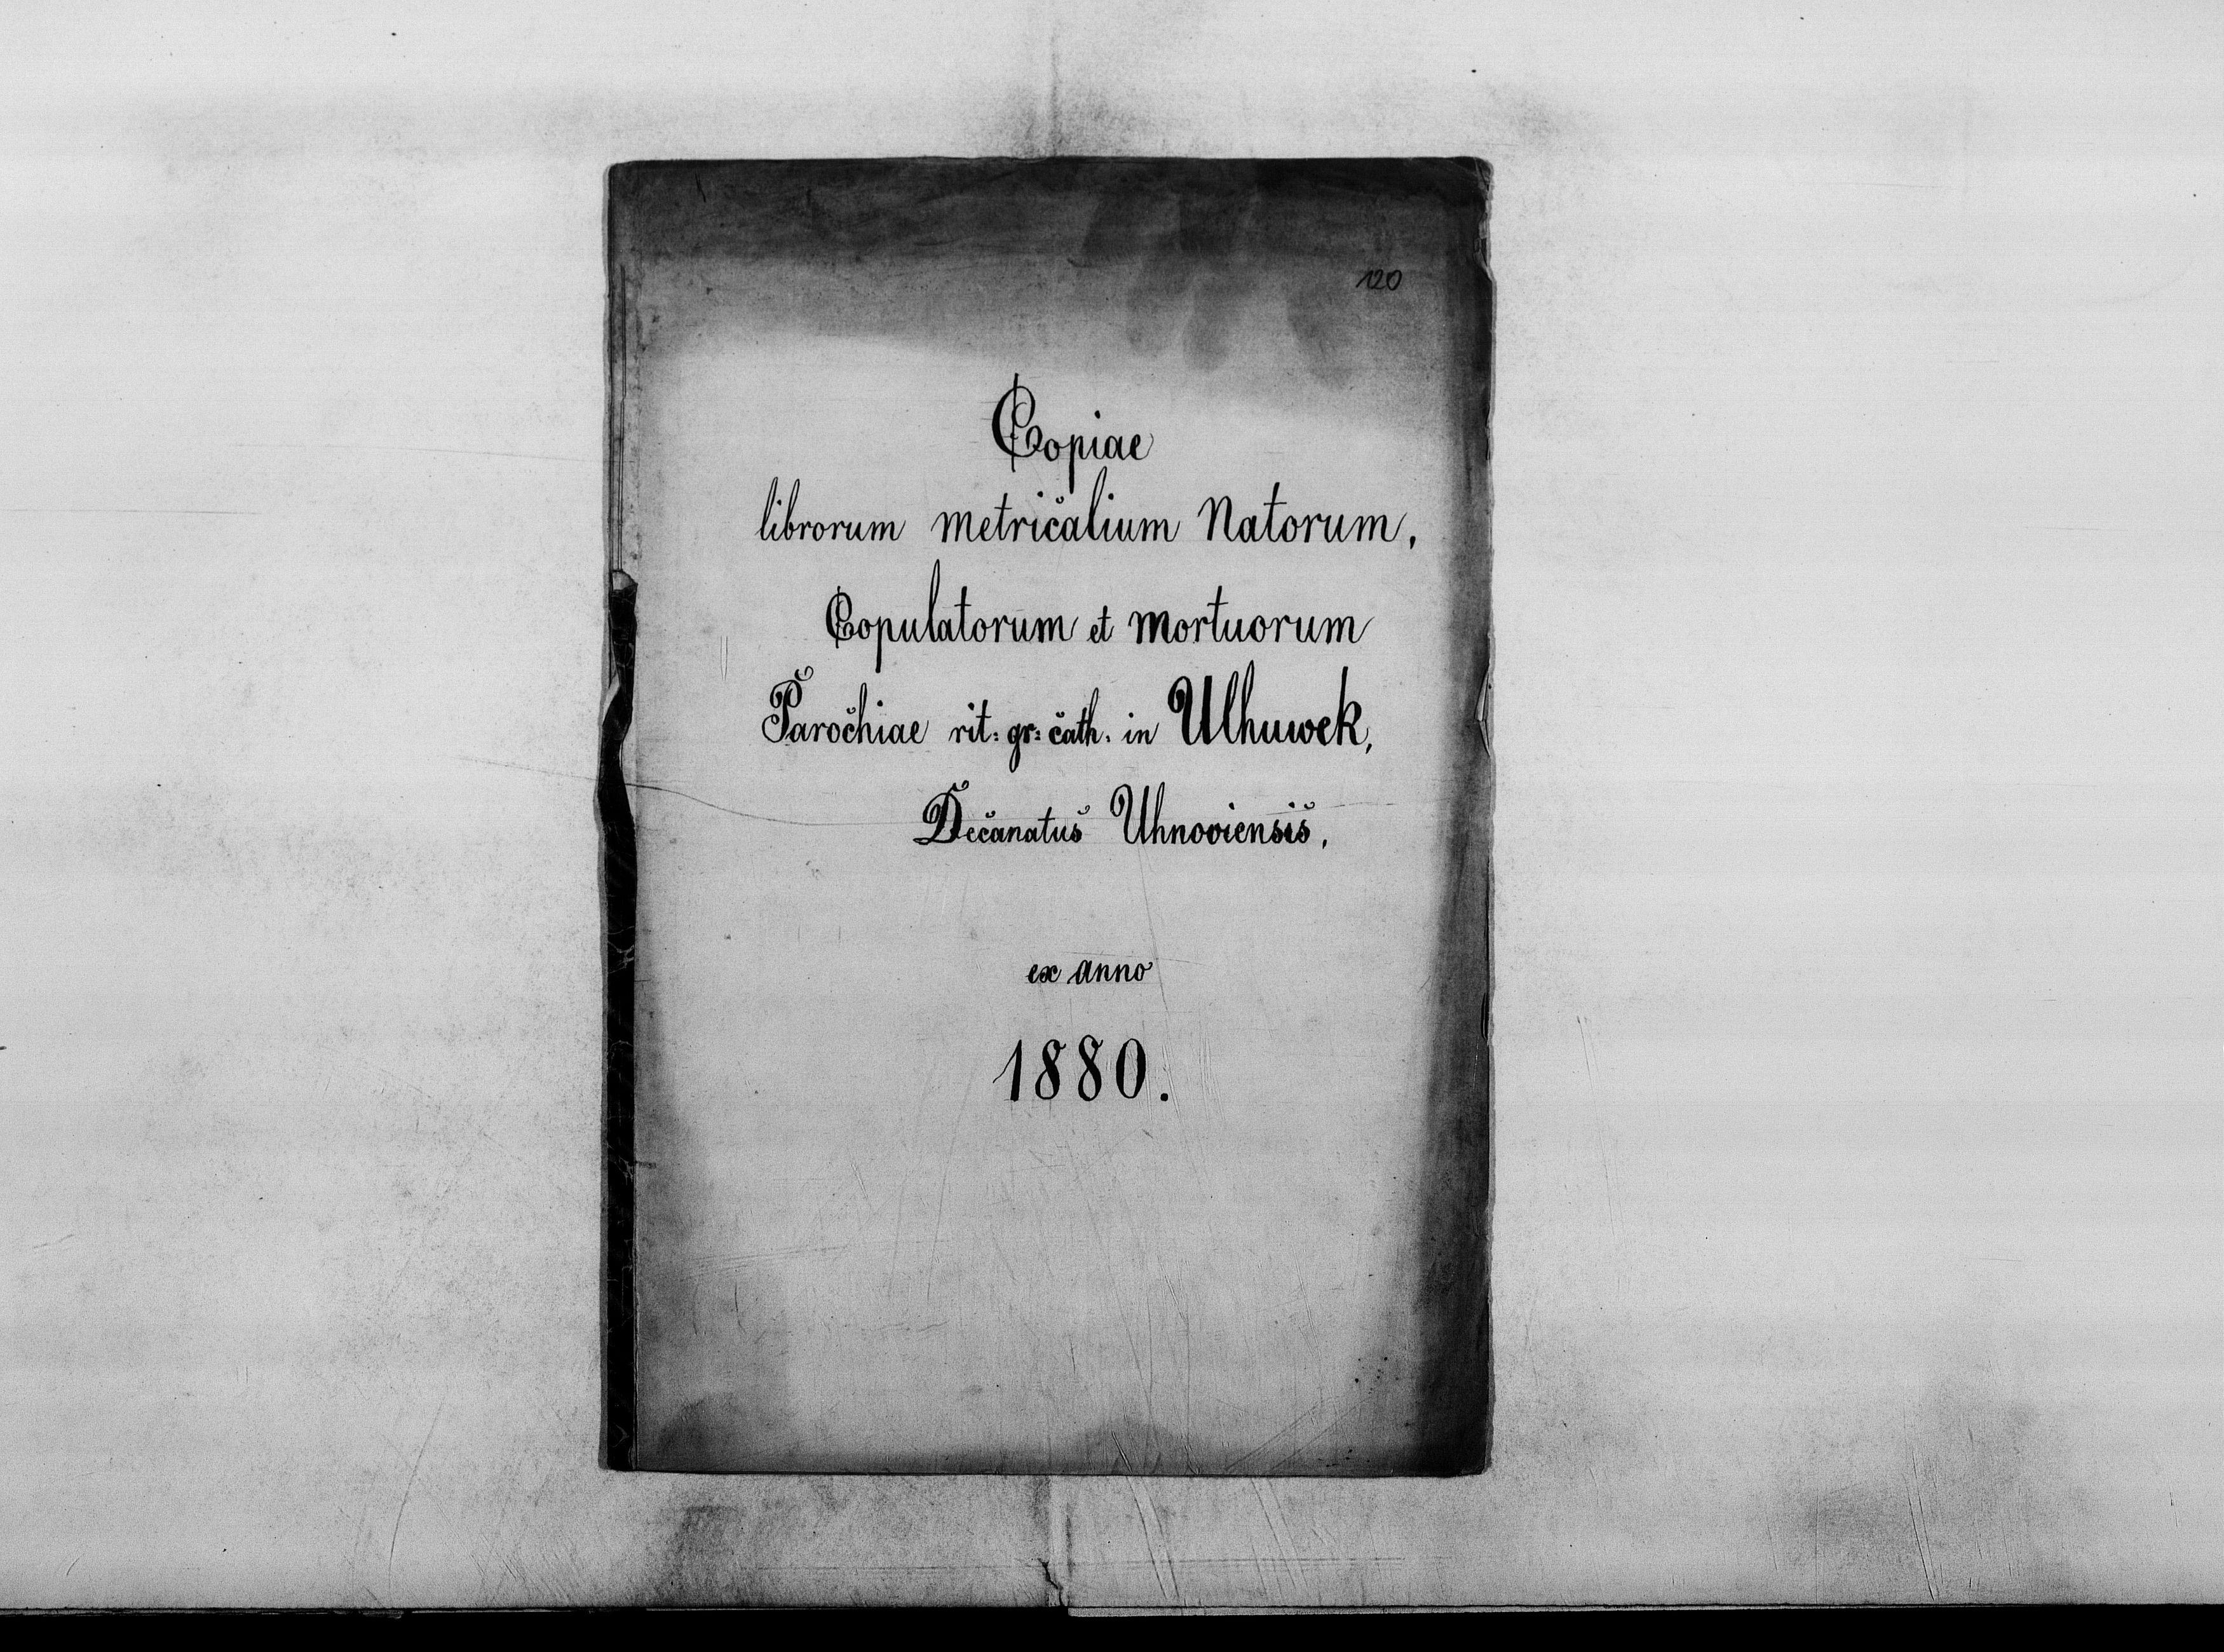 120
Copiae
librorum metricalium Natorum,
Copulatorum et Mortuorum
Parochiae rit: gr: cath: in Ulhuwek,
Decanatus Uhnoviensis,
ex anno
1880.